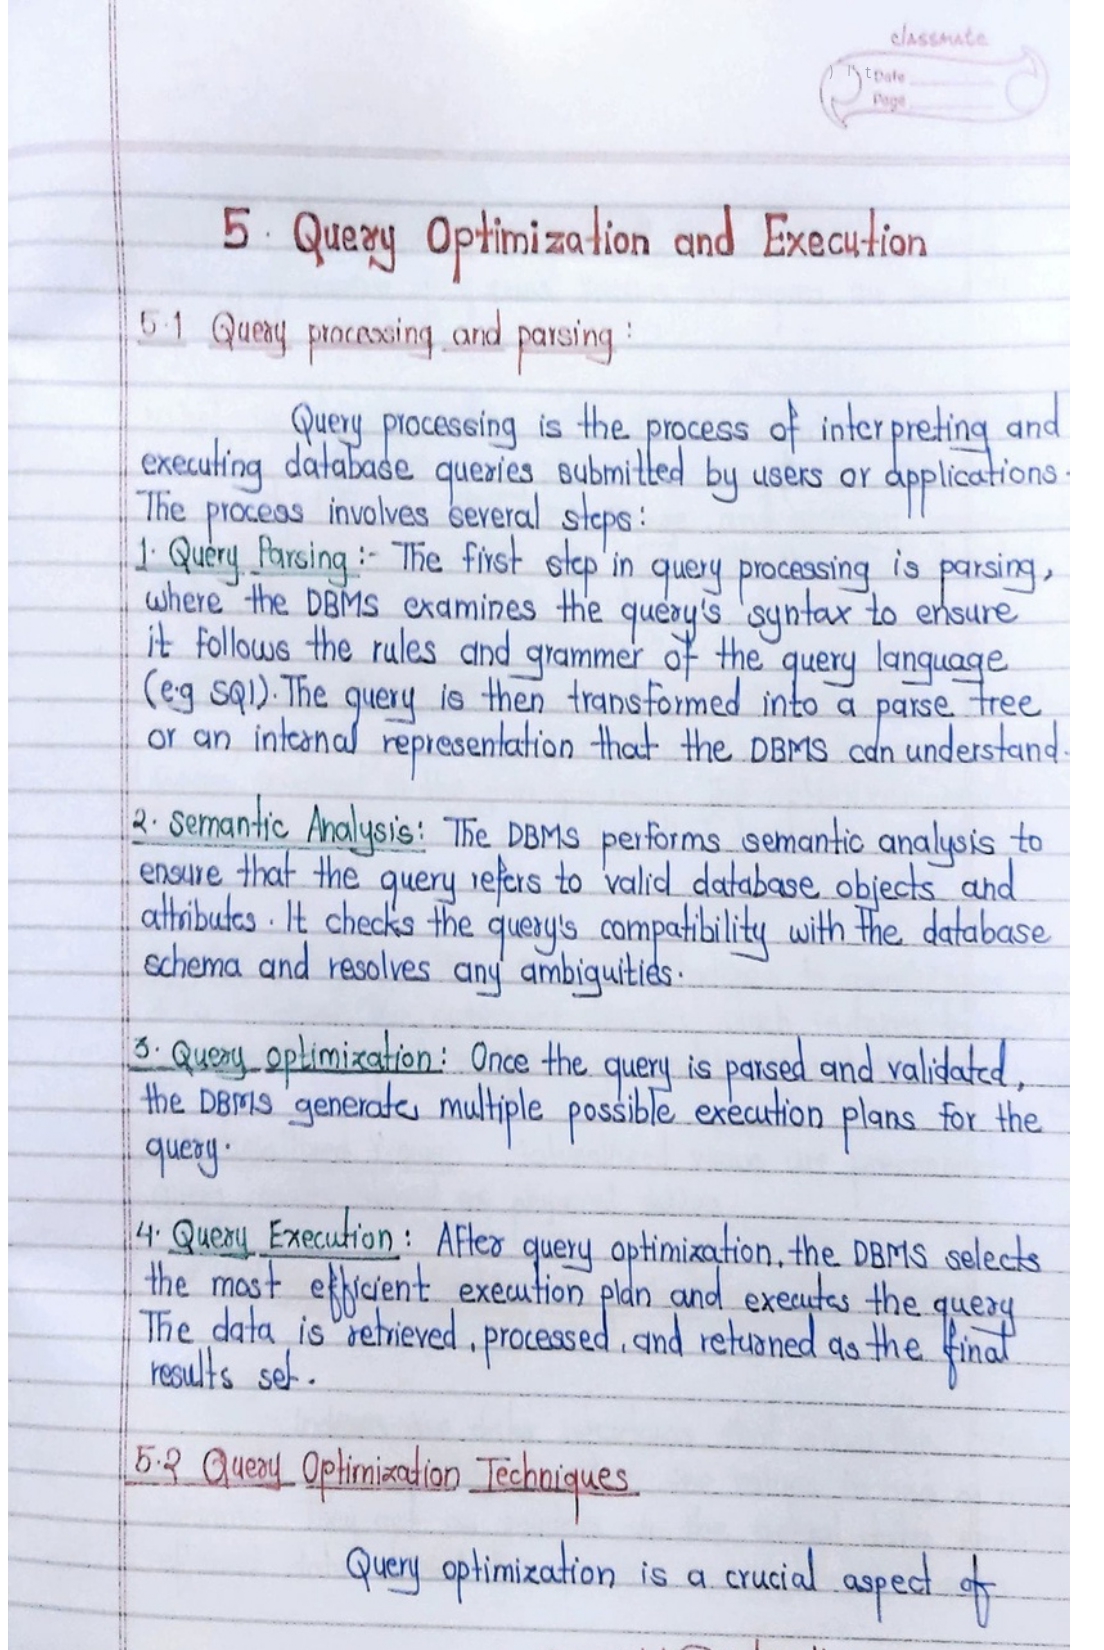 classmate
Date
Page
5. Query Optimization and Execution
5.1 Query processing and parsing:
Query processing is the process of interpreting and
executing database queries submitted by users or applications.
The process involves several steps:
1. Query Parsing :- The first step in query processing is parsing,
where the DBMS examines the query's syntax to ensure
it follows the rules and grammer of the query language
(e.g SQl). The query is then transformed into a parse tree
or an internal representation that the DBMS can understand.
2. Semantic Analysis: The DBMS performs semantic analysis to
ensure that the query refers to valid database objects and
attributes. It checks the query's compatibility with the database
schema and resolves any ambiguities.
3. Query optimization: Once the query is parsed and validated,
the DBMS generates multiple possible execution plans for the
query.
4. Query Execution: After query optimization, the DBMS selects
the most efficient execution plan and executes the query
The data is retrieved, processed, and returned as the final
results set.
5.2 Query Optimization Techniques
Query optimization is a crucial aspect of